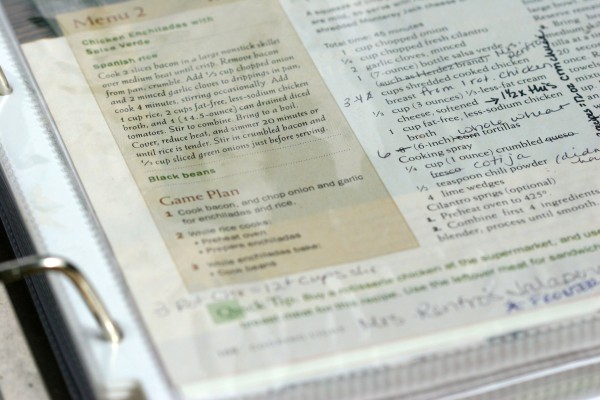 Menu 2
Chicken Enchiladas with
Salsa Verde
Spanish rice
Cook 2 slices bacon in a large nonstick skillet
over medium heat until crisp. Remove bacon
from pan; crumble. Add ½ cup chopped onion
and 2 minced garlic cloves to drippings in pan;
cook 4 minutes, stirring occasionally. Add
1 cup rice, 2 cups fat-free, less-sodium chicken
broth, and 1 (14.5-ounce) can drained diced
tomatoes. Stir to combine. Bring to a boil.
Cover, reduce heat, and simmer 20 minutes or
until rice is tender. Stir in crumbled bacon and
⅓ cup sliced green onions just before serving.
Black beans
Game Plan
1 Cook bacon, and chop onion and garlic
for enchiladas and rice.
2 While rice cooks:
• Preheat oven
• Prepare enchiladas
3 While enchiladas bake:
• Cook beans
Total time: 45 minutes
1 cup chopped onion
cup chopped fresh cilantro
garlic cloves, minced
(7-ounce) bottle salsa verde
(such as Herdez brand)
3-4
cups shredded cooked chicken
breast from rot. chicken
⅓ cup (3 ounces) ⅓-less-fat cream
cheese, softened → 1/2 this
1 cup fat-free, less-sodium chicken
broth whole wheat
6 (6-inch) corn tortillas
Cooking spray
¼ cup (1 ounce) crumbled queso
fresco cotija
½ teaspoon chili powder (didn't
4 lime wedges
Cilantro sprigs (optional)
1. Preheat oven to 425°
2. Combine first 4 ingredients
blender; process until smooth
Quick Tip: Buy a rotisserie chicken at the supermarket, and use
breast meat for this recipe. Use the leftover meat for sandwich
Mrs Renfro's Jalapeno